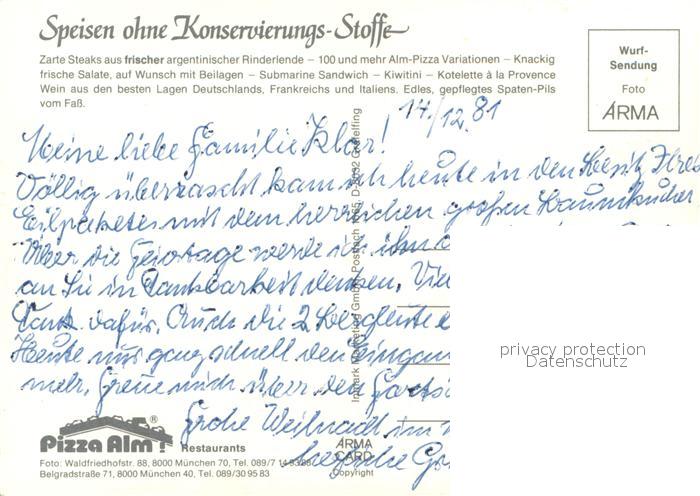 Speisen ohne Konservierungs-Stoffe
Zarte Steaks aus frischer argentinischer Rinderlende – 100 und mehr Alm-Pizza Variationen – Knackig
frische Salate, auf Wunsch mit Beilagen – Submarine Sandwich – Kiwitini – Kotelette à la Provence
Wein aus den besten Lagen Deutschlands, Frankreichs und Italiens. Edles, gepflegtes Spaten-Pils
vom Faß.
Wurf-
Sendung
Foto
ARMA
14./12.81
Meine liebe Familie Klar!
Völlig überrascht kam ich heute in den Besitz Ihres
Eilpaketes mit dem herrlichen großen Baumkuchen
Über die Feiertage werde ich
an Sie in Dankbarkeit denken. Vie
Dank dafür. Auch die 2
Heute nur ganz schnell den Eingan
mehr, freue mich über den
Frohe Weihnacht im
herzliche
Inmark Marketing GmbH Postfach D-8032 Gräfelfing
privacy protection
Datenschutz
Pizza Alm! ® Restaurants
Foto: Waldfriedhofstr. 88, 8000 München 70, Tel. 089/7
Belgradstraße 71, 8000 München 40, Tel. 089/30 95 83
ARMA
CARD
Copyright